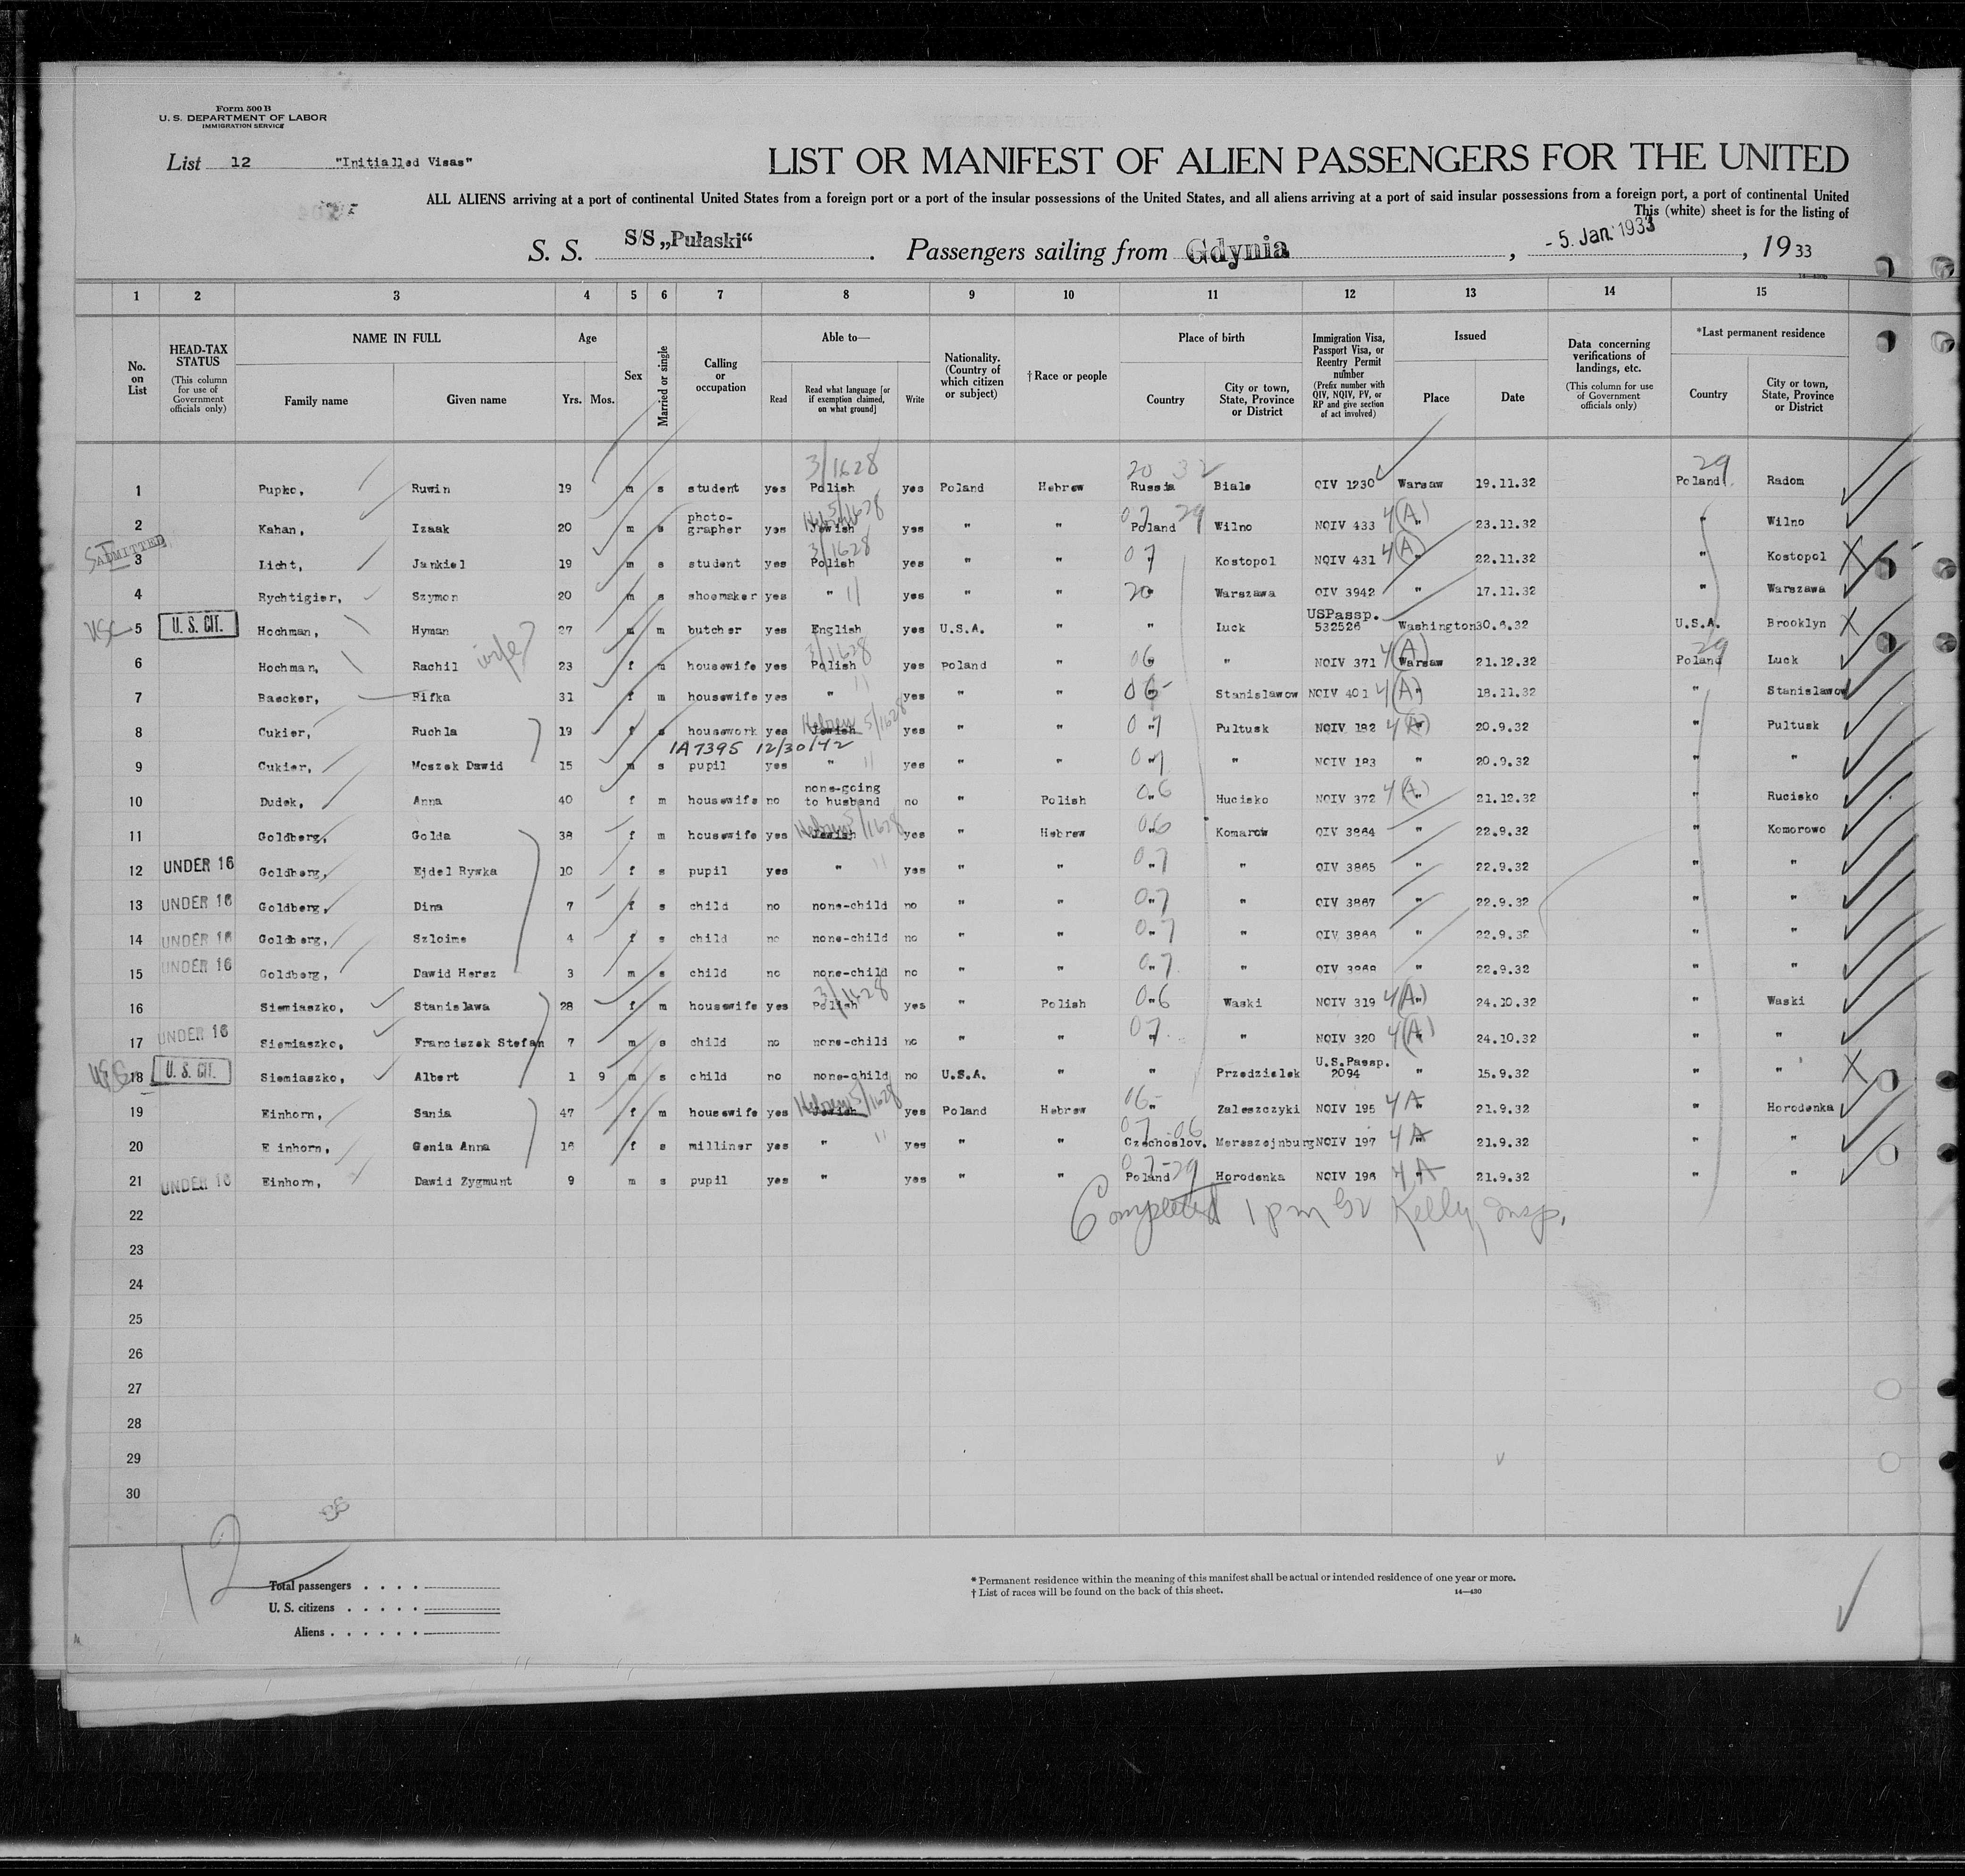 Form 500 B
U. S. DEPARTMENT OF LABOR
IMMIGRATION SERVICE
List 12 "Initialled Visas"
LIST OR MANIFEST OF ALIEN PASSENGERS FOR THE UNITED
ALL ALIENS arriving at a port of continental United States from a foreign port or a port of the insular possessions of the United States, and all aliens arriving at a port of said insular possessions from a foreign port, a port of continental United
This (white) sheet is for the listing of
S. S. S/S „Pułaski“ . Passengers sailing from Gdynia , - 5. Jan. 1933 , 19 33
1 2 3 4 5 6 7 8 9 10 11 12 13 14 15
No. on List
HEAD-TAX STATUS (This column for use of Government officials only)
NAME IN FULL
Family name Given name
Age
Yrs. Mos.
Sex
Married or single
Calling or occupation
Able to—
Read Read what language [or if exemption claimed, on what ground] Write
Nationality. (Country of which citizen or subject)
†Race or people
Place of birth
Country City or town, State, Province or District
Immigration Visa, Passport Visa, or Reentry Permit number (Prefix number with QIV, NQIV, PV, or RP and give section of act involved)
Issued
Place Date
Data concerning verifications of landings, etc. (This column for use of Government officials only)
*Last permanent residence
Country City or town, State, Province or District
3/1628 20 32 29
1 Pupko, Ruwin 19 m s student yes Polish yes Poland Hebrew Russia Biale QIV 1230 Warsaw 19.11.32 Poland Radom
2 Kahan, Izaak 20 m s photo-grapher yes Jewish Hebrew 5/1628 yes " " Poland 07 29 Wilno NQIV 433 4(A) " 23.11.32 " Wilno
ADMITTED
3 Licht, Jankiel 19 m s student yes Polish 3/1628 yes " " 07 " Kostopol NQIV 431 4(A) " 22.11.32 " Kostopol
4 Rychtigier, Szymon 20 m s shoemaker yes " 11 yes " " 20 " Warszawa QIV 3942 " 17.11.32 " Warszawa
USC 5 U. S. CIT. Hochman, Hyman 27 m m butcher yes English yes U.S.A. " " Luck USPassp. 532526 Washington 30.6.32 U.S.A. Brooklyn
6 Hochman, Rachil wife? 23 f m housewife yes Polish 3/1628 yes Poland " 06 " " NQIV 371 4(A) Warsaw 21.12.32 Poland 29 Luck
7 Baecker, Rifka 31 f m housewife yes " 11 yes " " 06 " Stanislawow NQIV 401 4(A) " 18.11.32 " Stanislawow
8 Cukier, Ruchla 19 f s housework yes Jewish Hebrew 5/1628 yes " " 07 " Pultusk NQIV 192 4(A) " 20.9.32 " Pultusk
1A7395 12/30/42
9 Cukier, Moszek Dawid 15 m s pupil yes " 11 yes " " 07 " " NQIV 193 " 20.9.32 " "
10 Dudek, Anna 40 f m housewife no none-going to husband no " Polish 06 " Hucisko NQIV 372 4(A) " 21.12.32 " Rucisko
11 Goldberg, Golda 38 f m housewife yes Jewish Hebrew 5/1628 yes " Hebrew 06 " Komarow QIV 3864 " 22.9.32 " Komorowo
12 UNDER 16 Goldberg, Ejdel Rywka 10 f s pupil yes " 11 yes " " 07 " " QIV 3865 " 22.9.32 " "
13 UNDER 16 Goldberg, Dina 7 f s child no none-child no " " 07 " " QIV 3867 " 22.9.32 " "
14 UNDER 16 Goldberg, Szloime 4 f s child no none-child no " " 07 " " QIV 3866 " 22.9.32 " "
15 UNDER 16 Goldberg, Dawid Hersz 3 m s child no none-child no " " 07 " " QIV 3868 " 22.9.32 " "
16 Siemiaszko, Stanislawa 28 f m housewife yes Polish 3/1628 yes " Polish 06 " Waski NQIV 319 4(A) " 24.10.32 " Waski
17 UNDER 16 Siemiaszko, Franciszek Stefan 7 m s child no none-child no " " 07 " " NQIV 320 4(A) " 24.10.32 " "
18 U. S. CIT. Siemiaszko, Albert 1 9 m s child no none-child no U.S.A. " " Przedzielsk U.S.Passp. 2094 " 15.9.32 " "
19 Einhorn, Sania 47 f m housewife yes Jewish Hebrew 5/1628 yes Poland Hebrew 06 " Zaleszczyki NQIV 195 4 A " 21.9.32 " Horodenka
20 Einhorn, Genia Anna 16 f s milliner yes " 11 yes " " Czechoslov. 07 06 Mereszejnburg NQIV 197 4 A " 21.9.32 " "
21 UNDER 16 Einhorn, Dawid Zygmunt 9 m s pupil yes " yes " " Poland 07-29 Horodenka NQIV 196 4 A " 21.9.32 " "
22 Completed 1 pm Kelly, Insp.
23
24
25
26
27
28
29
30
12
Total passengers . . . .
U. S. citizens . . . . .
Aliens . . . . . .
* Permanent residence within the meaning of this manifest shall be actual or intended residence of one year or more.
† List of races will be found on the back of this sheet. 14—430